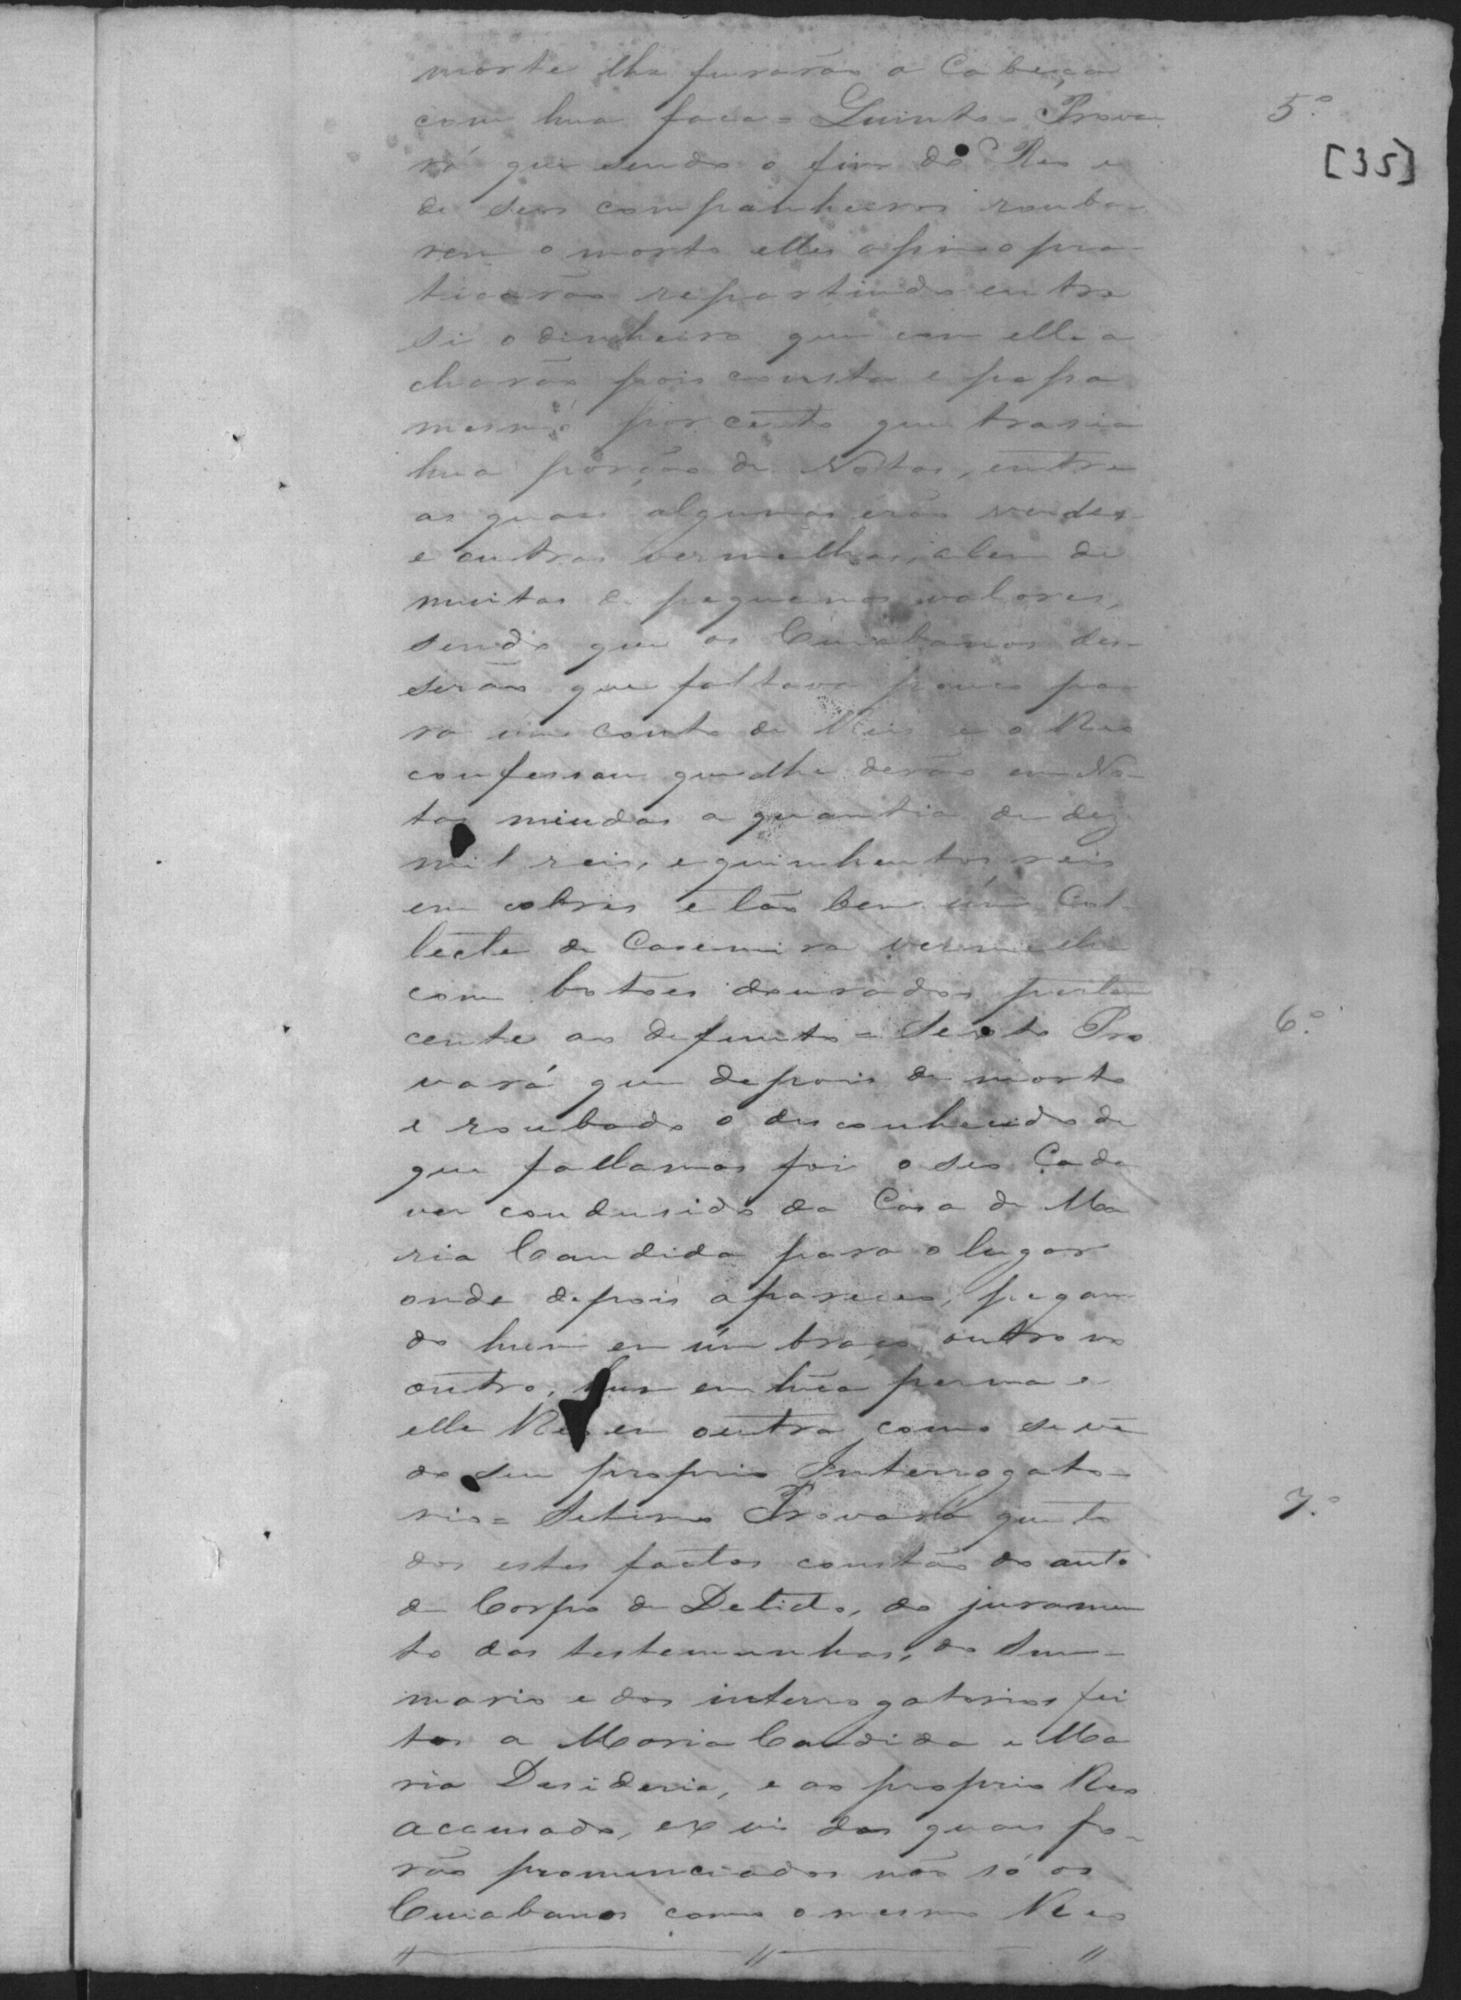 morte lhe furarão a Cabeça
com hua faca = Quinto = Prova
5.º
rá que sendo o fim do Reo e
[35]
de seos companheiros rouba-
rem o morto elles o pra-
ticarão repartindo entre
si o dinheiro que com elle a
charão pois consta e
mesmo por certo que trasia
hua porção de Notas, entre
as quaes algumas erão verdes
e outras vermelhas, alem de
muitas de pequenos valores,
sendo que os Cuiabanos dis-
serão que faltava pouco pa
ra um conto de Reis e o Reo
confessou que lhe derão em No-
tas miudas a quantia de dez
mil reis, e quinhentos reis
em cobres e tão bem úm Col-
lecte de Casemira vermelha
com botoes dourados perten
cente ao defunto = Sexto Pro
6.º
vará que depois de morto
e roubado o desconhecido de
que fallamos foi o seo Cada
ver condusido da Casa de Ma
ria Candida para o lugar
onde depois apareceo, pegan
do hum em úm braço outro no
outro, hum em húa perna e
elle Reo em outra como se vê
do seu proprio Interrogato-
rio = Setimo Provará que to
7.º
dos estes factos constão do auto
de Corpo de Delicto, do juramen
to das testemunhas, do Sum-
mario e dos interrogatorios fei
tos a Maria Candida e Ma
ria Desideria, e ao proprio Reo
accusado, ex vi dos quaes fo-
rão pronunciados não só os
Cuiabanos como o mesmo Reo